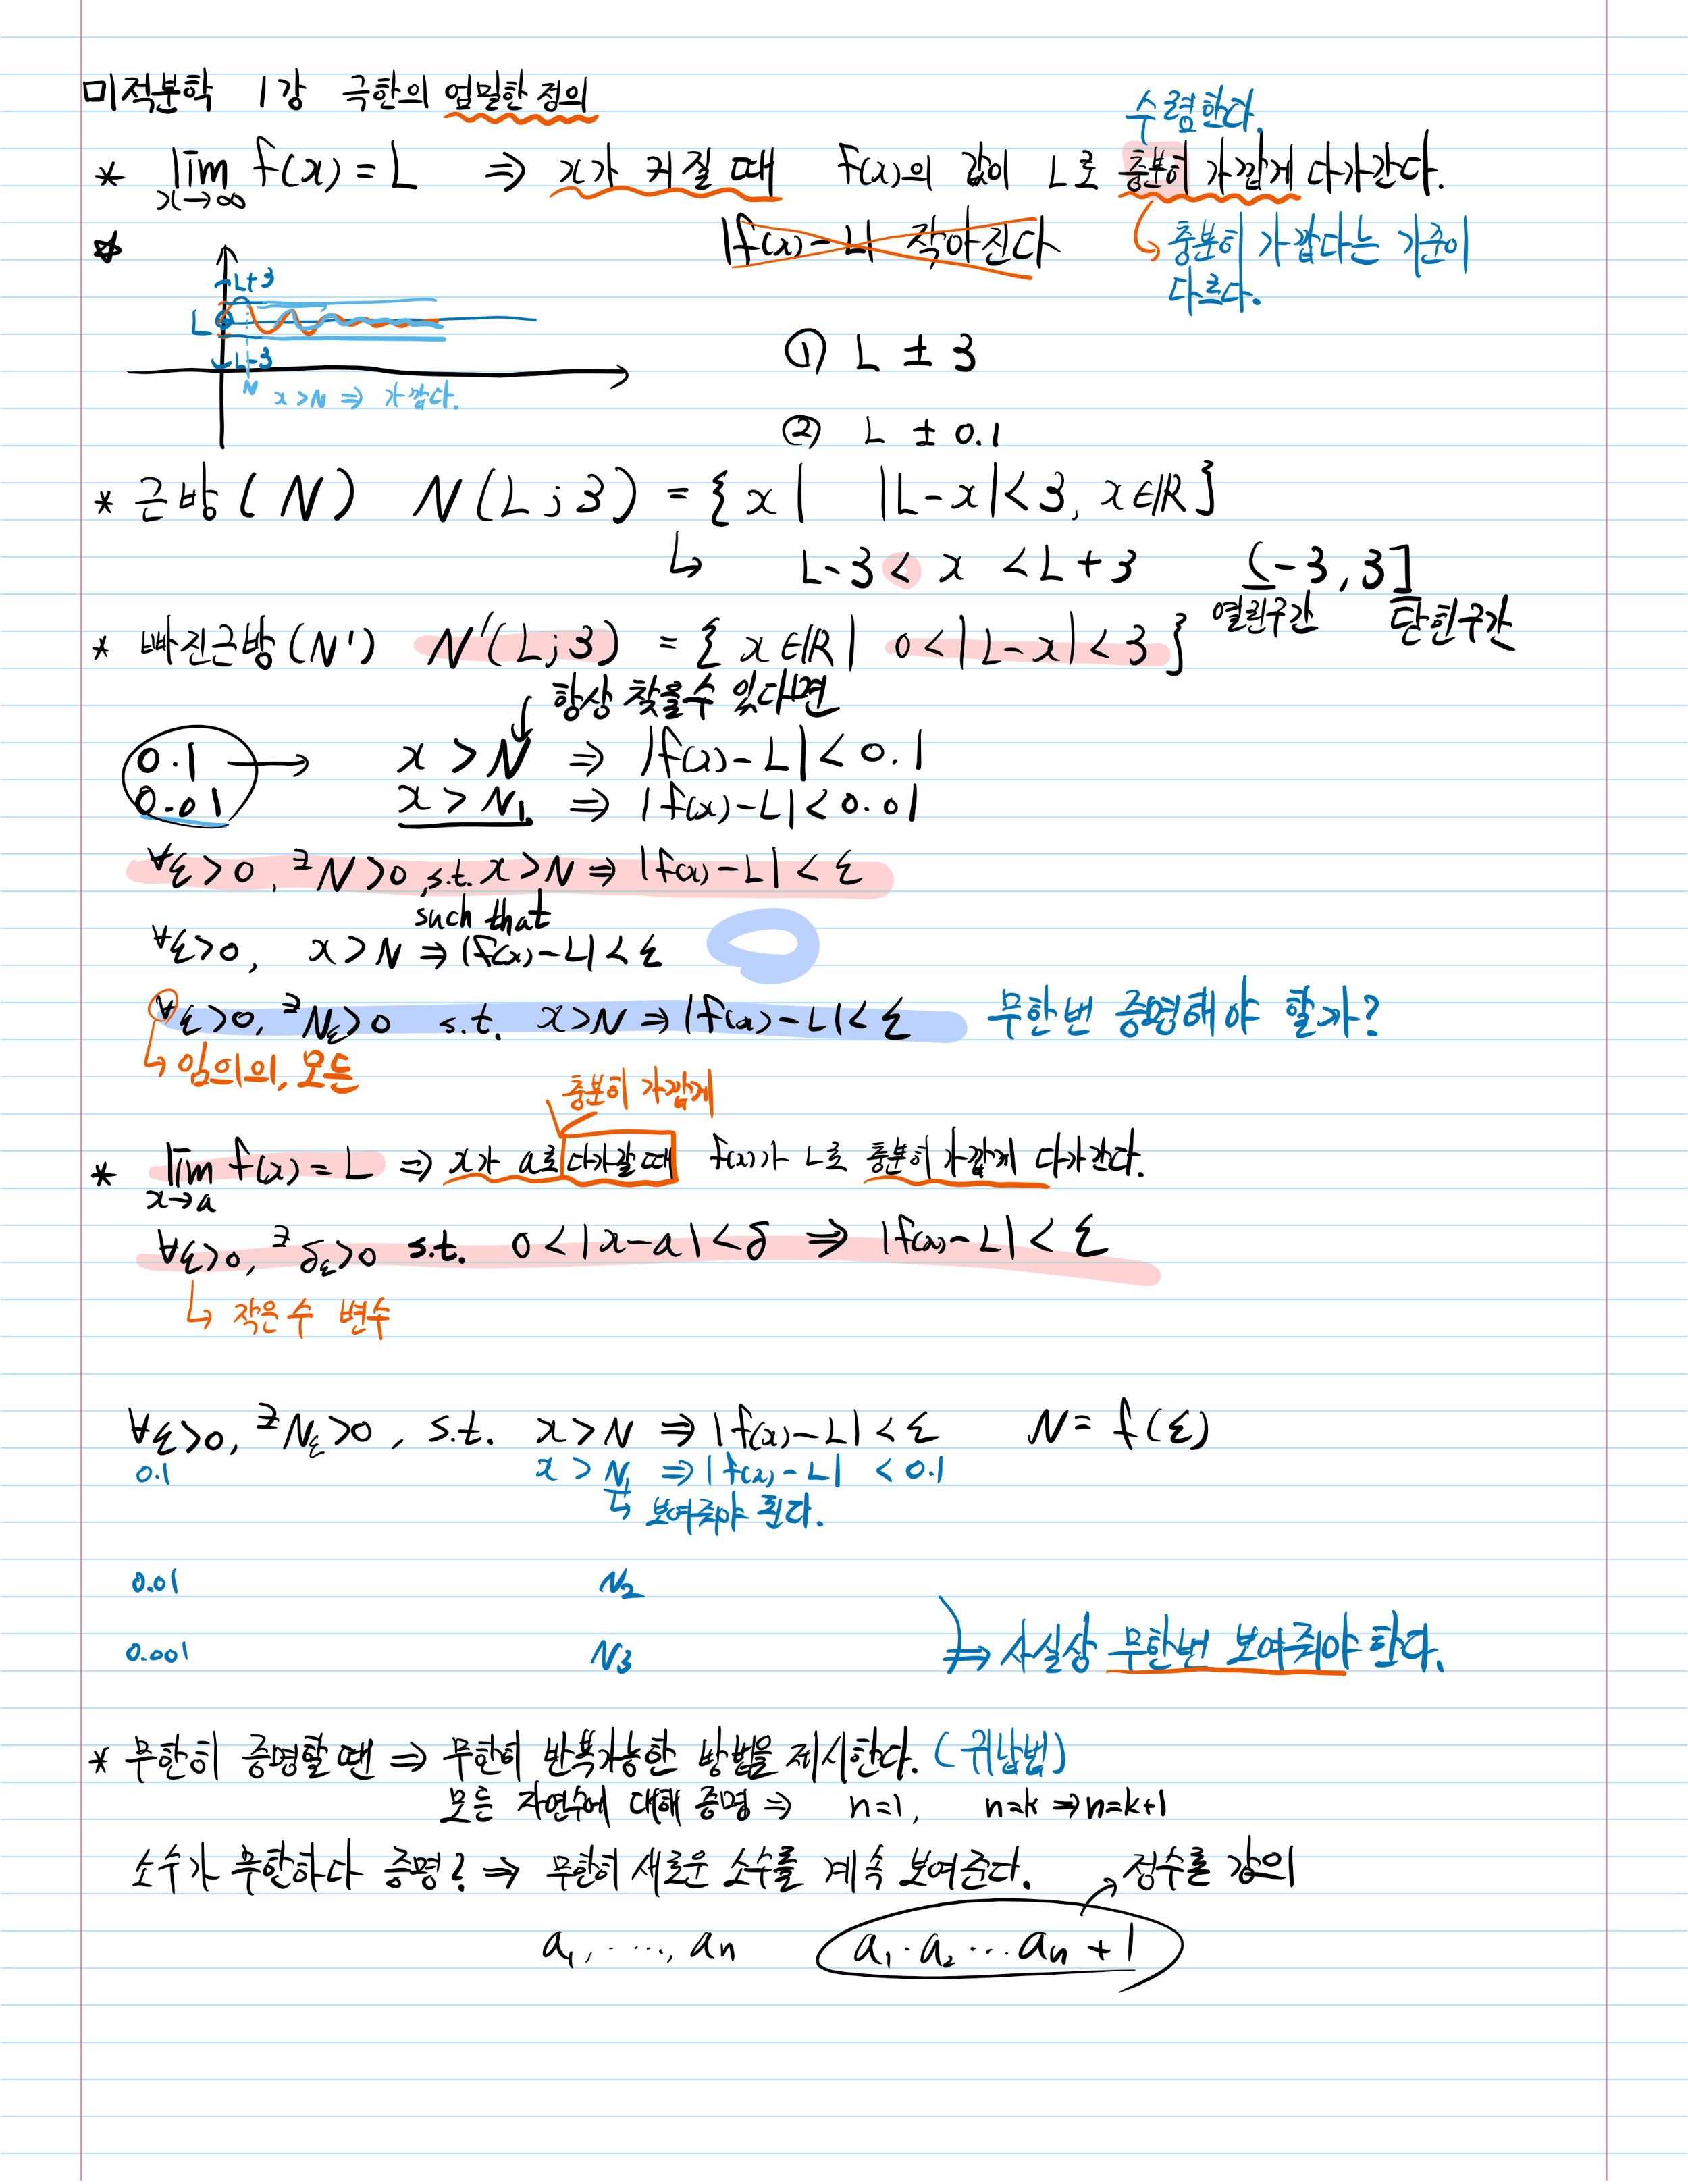 미적분학 1강 극한의 엄밀한 정의
수렴한다.
* lim f(x) = L ⇒ x가 커질 때 f(x)의 값이 L로 충분히 가깝게 다가간다.
x→∞
|f(x)-L| 작아진다
↳ 충분히 가깝다는 기준이
다르다.
L+3
L
L-3
N x>N ⇒ 가깝다.
① L ± 3
② L ± 0.1
* 근방 (N) N(L;3) = {x | |L-x|<3, x∈ℝ}
↳ L-3 < x < L+3 (-3, 3]
열린구간 닫힌구간
* 빠진근방(N') N'(L;3) = {x∈ℝ | 0<|L-x|<3}
항상 찾을수 있다면
0.1 → x > N ⇒ |f(x)-L| < 0.1
0.01 x > N₁ ⇒ |f(x)-L| < 0.01
∀ε>0, ∃N>0, s.t. x>N ⇒ |f(x)-L| < ε
such that
∀ε>0, x>N ⇒ |f(x)-L| < ε
∀ε>0, ∃Nε>0 s.t. x>N ⇒ |f(x)-L| < ε 무한번 증명해야 할까?
↳ 임의의, 모든
충분히 가깝게
* lim f(x) = L ⇒ x가 a로 다가갈 때 f(x)가 L로 충분히 가깝게 다가간다.
x→a
∀ε>0, ∃δε>0 s.t. 0<|x-a|<δ ⇒ |f(x)-L| < ε
↳ 작은 수 변수
∀ε>0, ∃Nε>0, s.t. x>N ⇒ |f(x)-L| < ε N = f(ε)
0.1 x > N₁ ⇒ |f(x)-L| < 0.1
↳ 보여줘야 된다.
0.01 N₂
0.001 N₃ ⇒ 사실상 무한번 보여줘야 한다.
* 무한히 증명할 땐 ⇒ 무한히 반복가능한 방법을 제시한다. (귀납법)
모든 자연수에 대해 증명 ⇒ n=1, n=k ⇒ n=k+1
소수가 무한하다 증명? ⇒ 무한히 새로운 소수를 계속 보여준다. 정수론 강의
a₁, ⋯, aₙ a₁·a₂⋯aₙ + 1